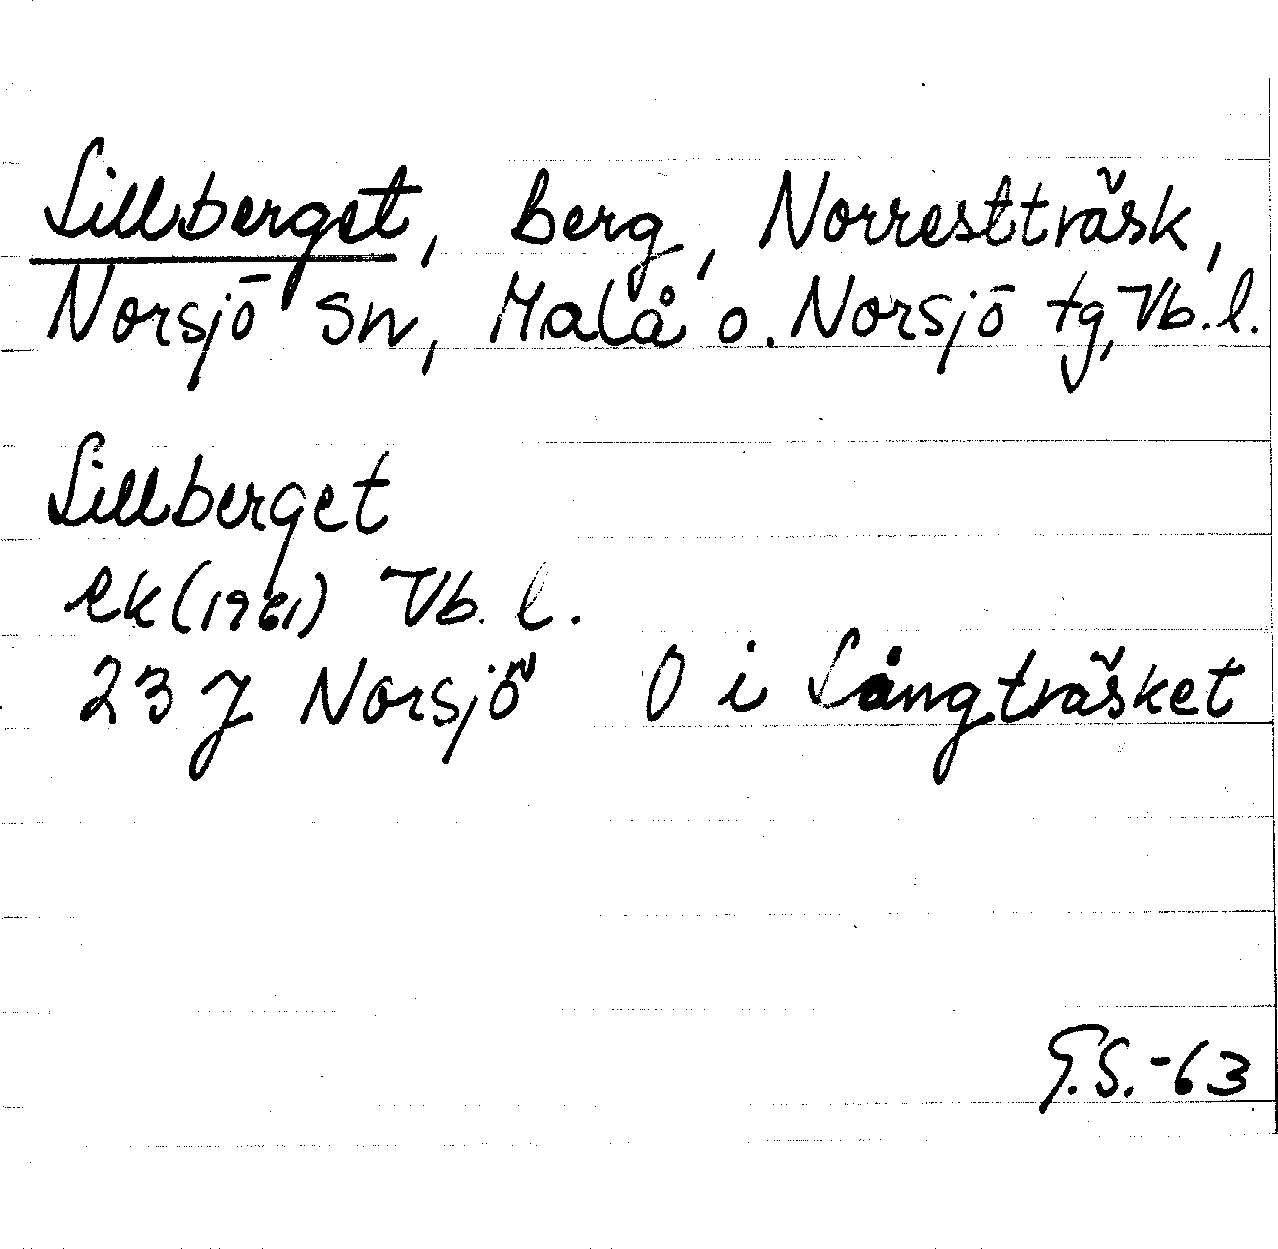 Lillberget, berg, Norrestträsk,
Norsjö sn, Malå o. Norsjö tg, Vb. l.
Lillberget
ek (1961) Vb. l.
23 J Norsjö O i Långträsket
G.S.-63